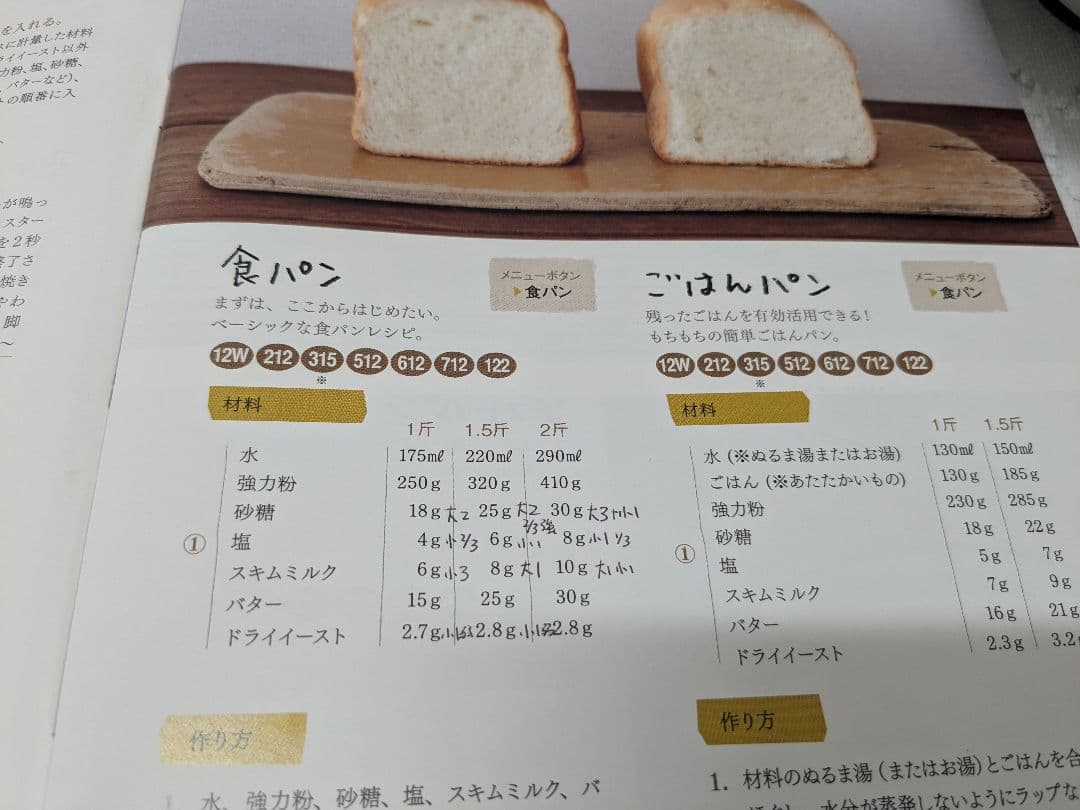 を入れる。
に計量した材料
ライイースト以外
力粉、塩、砂糖、
、バターなど)、
の順番に入
が鳴っ
スター
を2秒
終了さ
焼き
やわ
脚
〜
食パン
メニューボタン
▶食パン
まずは、ここからはじめたい。
ベーシックな食パンレシピ。
12W 212 315 512 612 712 122
※
材料
1斤 1.5斤 2斤
水 175㎖ 220㎖ 290㎖
強力粉 250g 320g 410g
砂糖 18g 大2 25g 大2 2/3強 30g 大3ト小1
① 塩 4g 小2/3 6g 小1 8g 小1 1/3
スキムミルク 6g 小3 8g 大1 10g 大1小1
バター 15g 25g 30g
ドライイースト 2.7g 2.8g 2.8g
作り方
1. 水、強力粉、砂糖、塩、スキムミルク、バ
ごはんパン
メニューボタン
▶食パン
残ったごはんを有効活用できる!
もちもちの簡単ごはんパン。
12W 212 315 512 612 712 122
※
材料
1斤 1.5斤
水(※ぬるま湯またはお湯) 130㎖ 150㎖
ごはん(※あたたかいもの) 130g 185g
強力粉 230g 285g
砂糖 18g 22g
① 塩 5g 7g
スキムミルク 7g 9g
バター 16g 21g
ドライイースト 2.3g 3.2g
作り方
1. 材料のぬるま湯(またはお湯)とごはんを合
水分が蒸発しないようにラップな